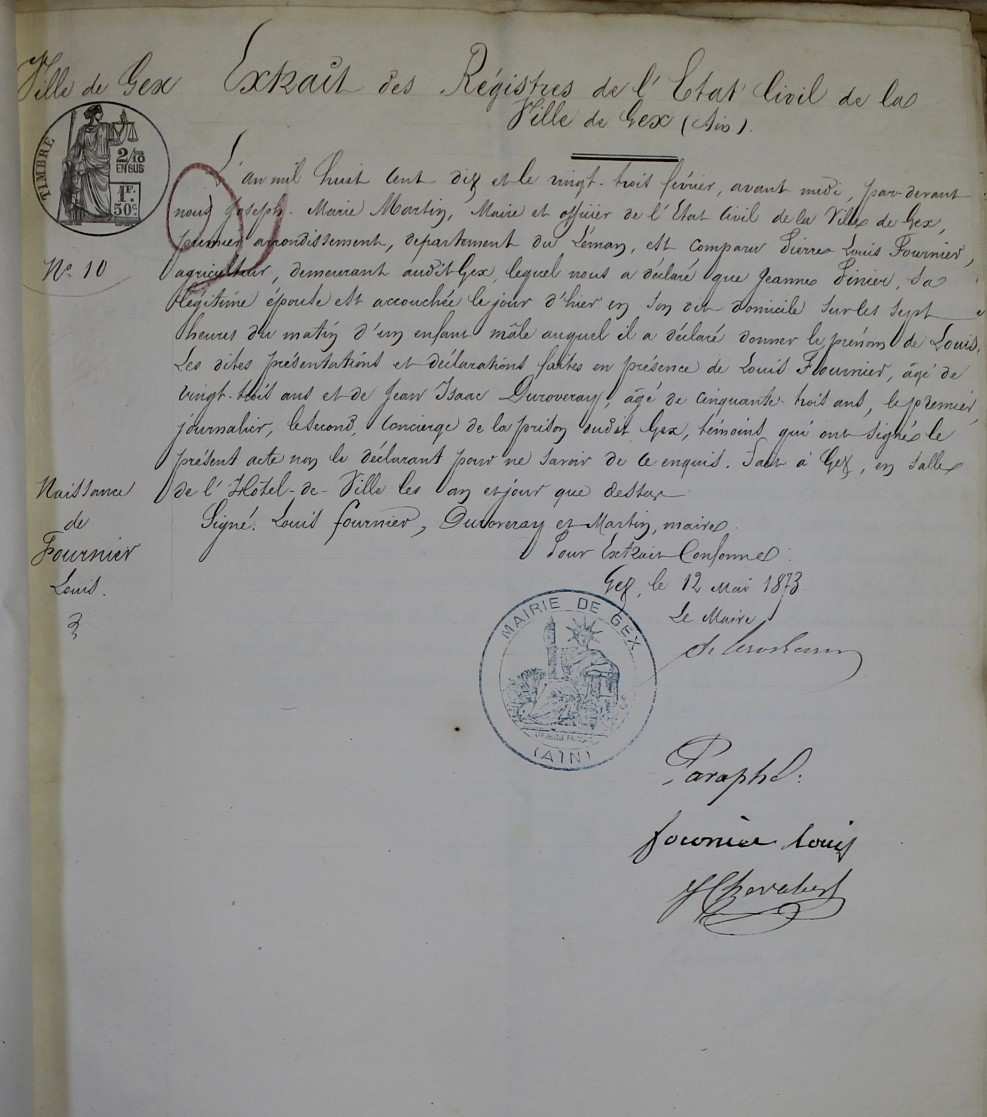 Ville de Gex
Extrait des Régistres de l'Etat Civil de la
Ville de Gex (Ain).
TIMBRE
2/10
EN SUS
1F.
50c
N° 10
L'an mil huit cent dix et le vingt-trois février, avant midi, par-devant
nous Joseph-Marie Martin, Maire et officier de l'Etat Civil de la Ville de Gex,
premier arrondissement, département du Léman, est comparu Pierre Louis Fournier,
agriculteur, demeurant audit Gex, lequel nous a déclaré que Jeanne Pinier, sa
légitime épouse est accouchée le jour d'hier en son dit domicile sur les sept
heures du matin d'un enfant mâle auquel il a déclaré donner le prénom de Louis.
Les dites présentations et déclarations faites en présence de Louis Fournier, âgé de
vingt-trois ans et de Jean Isaac Duroveray, âgé de cinquante-trois ans, le premier
journalier, le second, concierge de la prison dudit Gex, témoins qui ont signé le
présent acte non le déclarant pour ne savoir de ce enquis. Fait à Gex, en salle
de l'Hôtel-de-Ville les an et jour que dessus
Signé. Louis Fournier, Duroveray et Martin, maire.
Naissance
de
Fournier
Louis.
Pour Extrait Conforme:
Gex, le 12 Mai 1873
Le Maire
MAIRIE DE GEX
(AIN)
Paraphé:
fournier louis